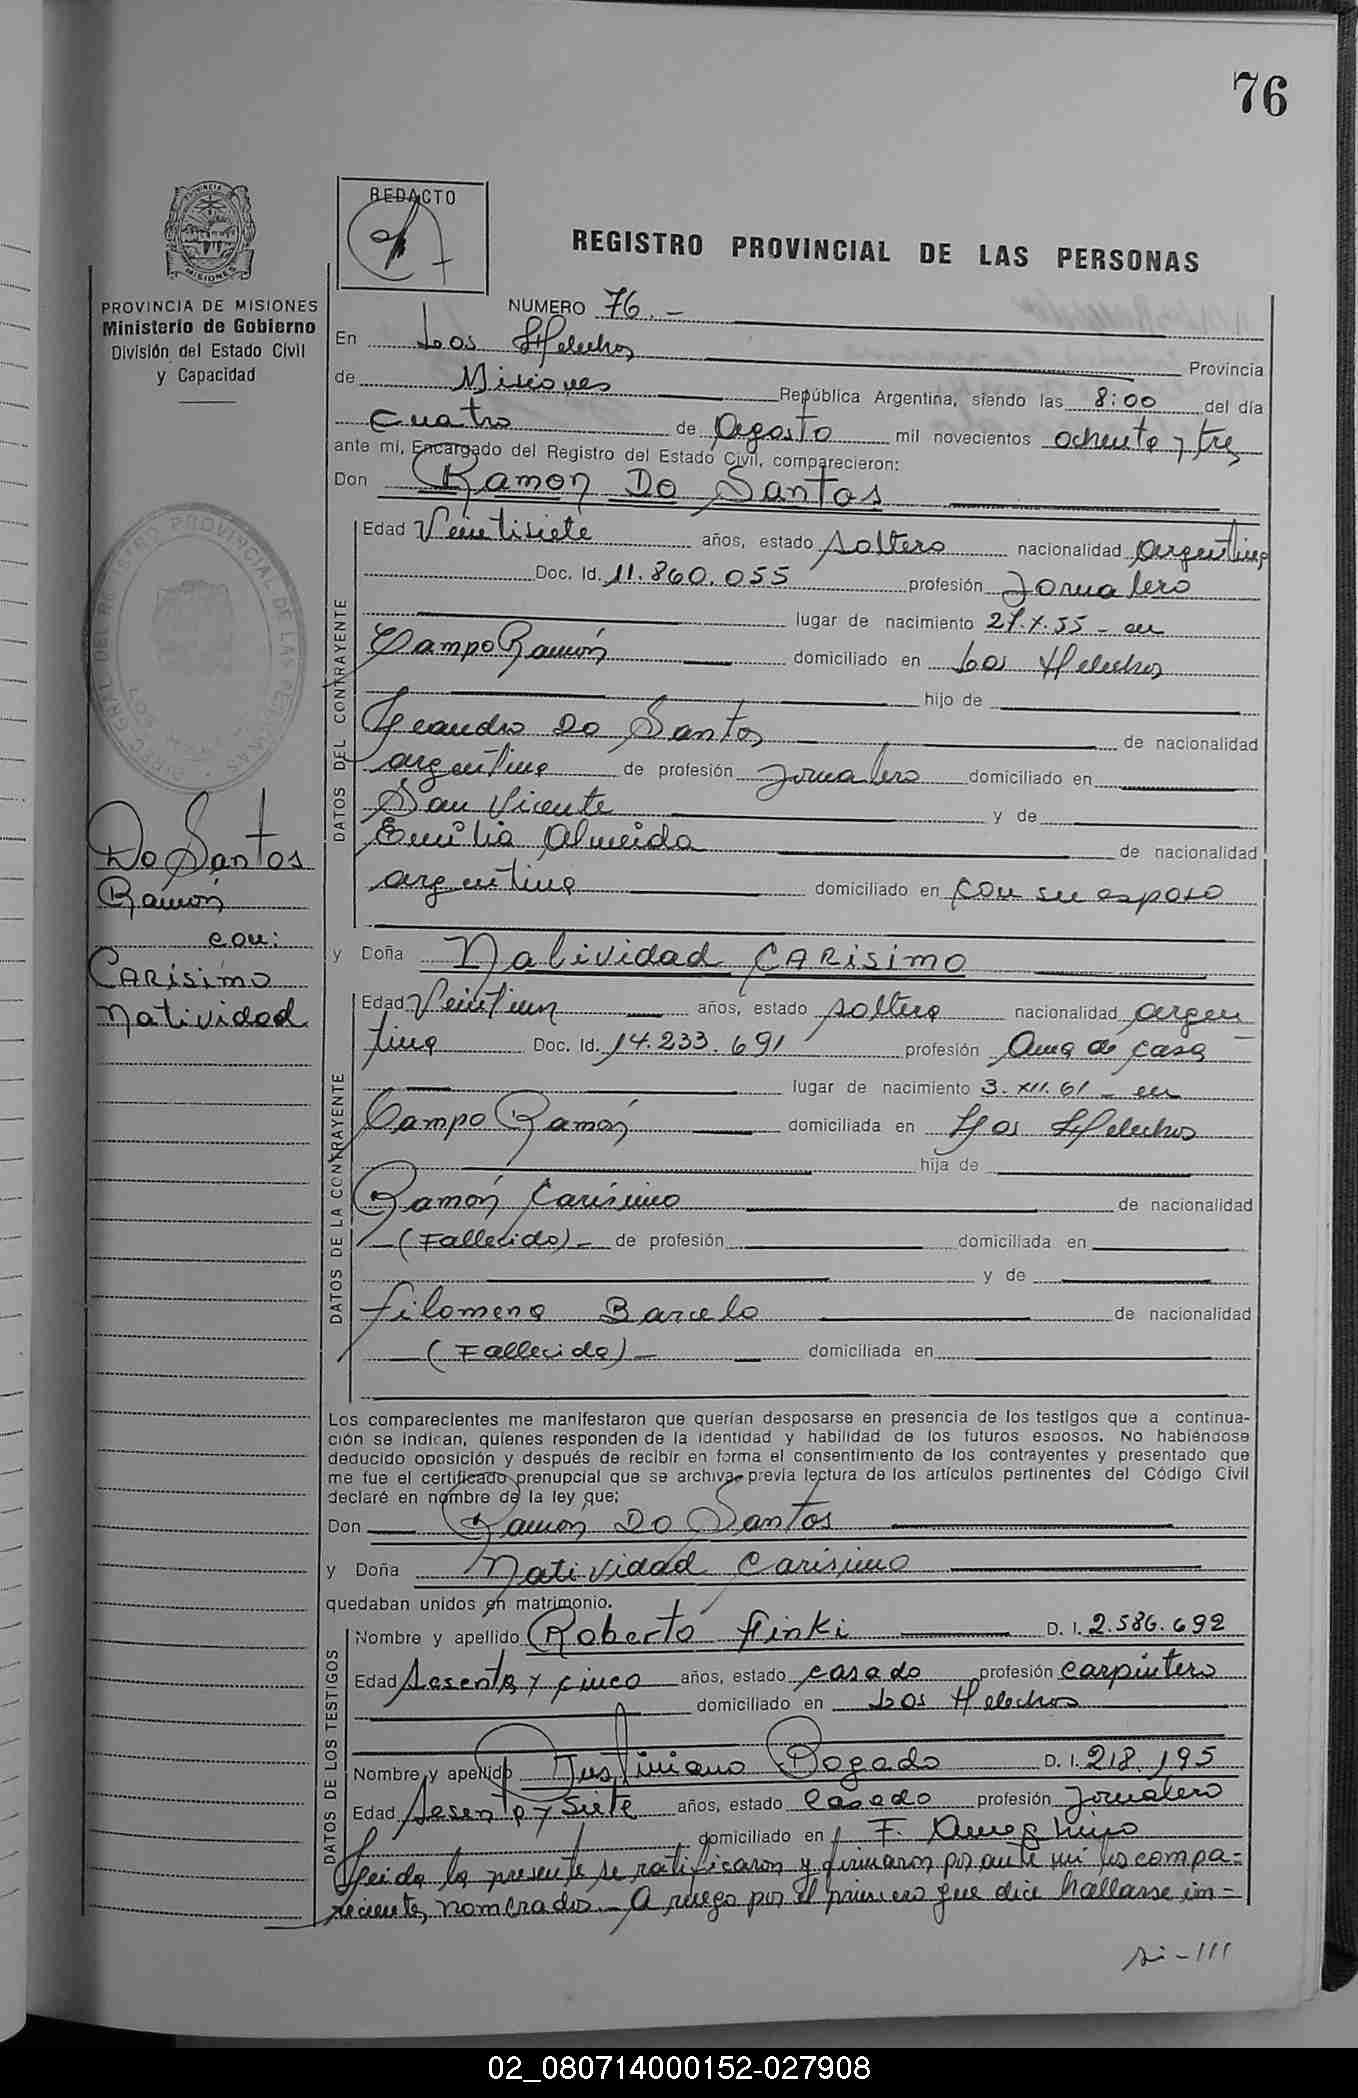 76
REDACTO
REGISTRO PROVINCIAL DE LAS PERSONAS
PROVINCIA DE MISIONES
Ministerio de Gobierno
División del Estado Civil
y Capacidad
NUMERO 76.-
En Los Helechos Provincia
de Misiones República Argentina, siendo las 8:00 del día
cuatro de Agosto mil novecientos ochenta y tres
ante mi, Encargado del Registro del Estado Civil, comparecieron:
Don Ramon Do Santos
DATOS DEL CONTRAYENTE
Edad Veintisiete años, estado soltero nacionalidad argentina
Doc. Id. 11.860.055 profesión Jornalero
lugar de nacimiento 27.X.55 - en
Campo Ramón domiciliado en Los Helechos
hijo de
Leandro Do Santos de nacionalidad
argentina de profesión Jornalero domiciliado en
San Vicente y de
Emilia Almeida de nacionalidad
argentina domiciliado en con su esposo
Do Santos
Ramón
con:
CARÍSIMO
Natividad
y Doña Natividad CARISIMO
DATOS DE LA CONTRAYENTE
Edad Veintiun años, estado soltera nacionalidad argen
tina Doc. Id. 14.233.691 profesión Ama de casa
lugar de nacimiento 3.XII.61 - en
Campo Ramón domiciliada en Los Helechos
hija de
Ramón Carísimo de nacionalidad
(Fallecido)- de profesión domiciliada en
y de
Filomena Barcelo de nacionalidad
(Fallecida)- domiciliada en
Los comparecientes me manifestaron que querían desposarse en presencia de los testigos que a continua-
ción se indican, quienes responden de la identidad y habilidad de los futuros esposos. No habiéndose
deducido oposición y después de recibir en forma el consentimiento de los contrayentes y presentado que
me fue el certificado prenupcial que se archiva previa lectura de los artículos pertinentes del Código Civil
declaré en nombre de la ley que:
Don Ramón Do Santos
y Doña Natividad Carísimo
quedaban unidos en matrimonio.
DATOS DE LOS TESTIGOS
Nombre y apellido Roberto Finki D. I. 2.586.692
Edad Sesenta y cinco años, estado casado profesión carpintero
domiciliado en Los Helechos
Nombre y apellido Justiniano Bogado D. I. 218.195
Edad Sesenta y siete años, estado Casado profesión Jornalero
domiciliado en F. Ameghino
Leida la presente se ratificaron y firmaron por ante mi los compa=
recientes nombrados.- A ruego por el primero que dice hallarse im-
///
02_080714000152-027908